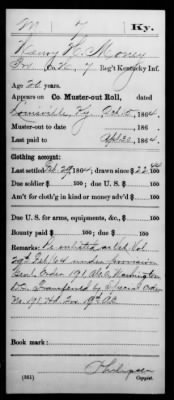 M 7 Ky.
Henry H. Money
Co. K, 7 Reg't Kentucky Inf.
Age 26 years.
Appears on Co. Muster-out Roll, dated
Louisville, Ky. Oct 5, 1864.
Muster-out to date , 186 .
Last paid to Apr 30, 1864.
Clothing account:
Last settled Feb 29, 1864; drawn since $ 22 44/100
Due soldier $ 100; due U. S. $ 100
Am't for cloth'g in kind or money adv'd $ 100
Due U. S. for arms, equipments, &c., $ 100
Bounty paid $ 100; due $ 100
Remarks: Re enlisted as Vet. Vol.
29th Feb. /64 under provision
Genl. Order 191 A.G.O. Washington
Transferred by Special Order
No.
Book mark:
(361) Copyist.